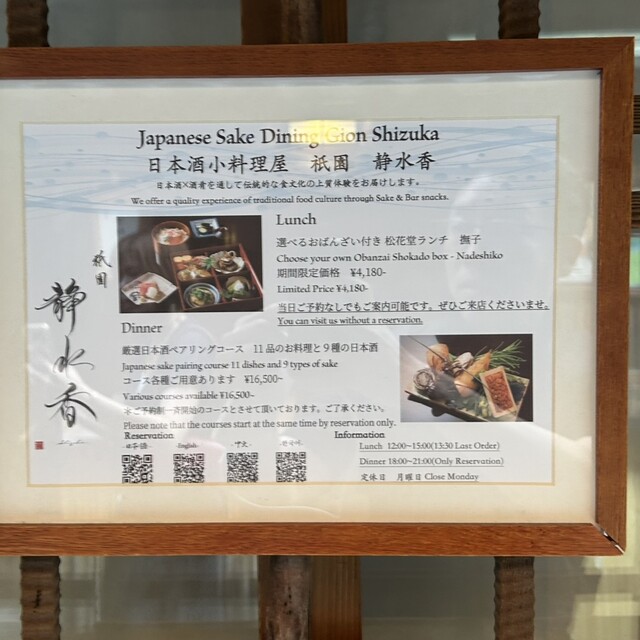 Japanese Sake Dining Gion Shizuka
日本酒小料理屋 祇園 静水香
日本酒×酒肴を通して伝統的な食文化の上質体験をお届けします。
We offer a quality experience of traditional food culture through Sake & Bar snacks.
祇園
静水香
Lunch
選べるおばんざい付き 松花堂ランチ 撫子
Choose your own Obanzai Shokado box - Nadeshiko
期間限定価格 ¥4,180-
Limited Price ¥4,180-
当日ご予約なしでもご案内可能です。ぜひご来店くださいませ。
You can visit us without a reservation.
Dinner
厳選日本酒ペアリングコース 11品のお料理と9種の日本酒
Japanese sake pairing course 11 dishes and 9 types of sake
コース各種ご用意あります ¥16,500~
Various courses available ¥16,500~
※ご予約制一斉開始のコースとさせて頂いております。ご了承ください。
Please note that the courses start at the same time by reservation only.
Reservation
-日本語- -English- -中文- -한국어-
Information
Lunch 12:00~15:00(13:30 Last Order)
Dinner 18:00~21:00(Only Reservation)
定休日 月曜日 Close Monday